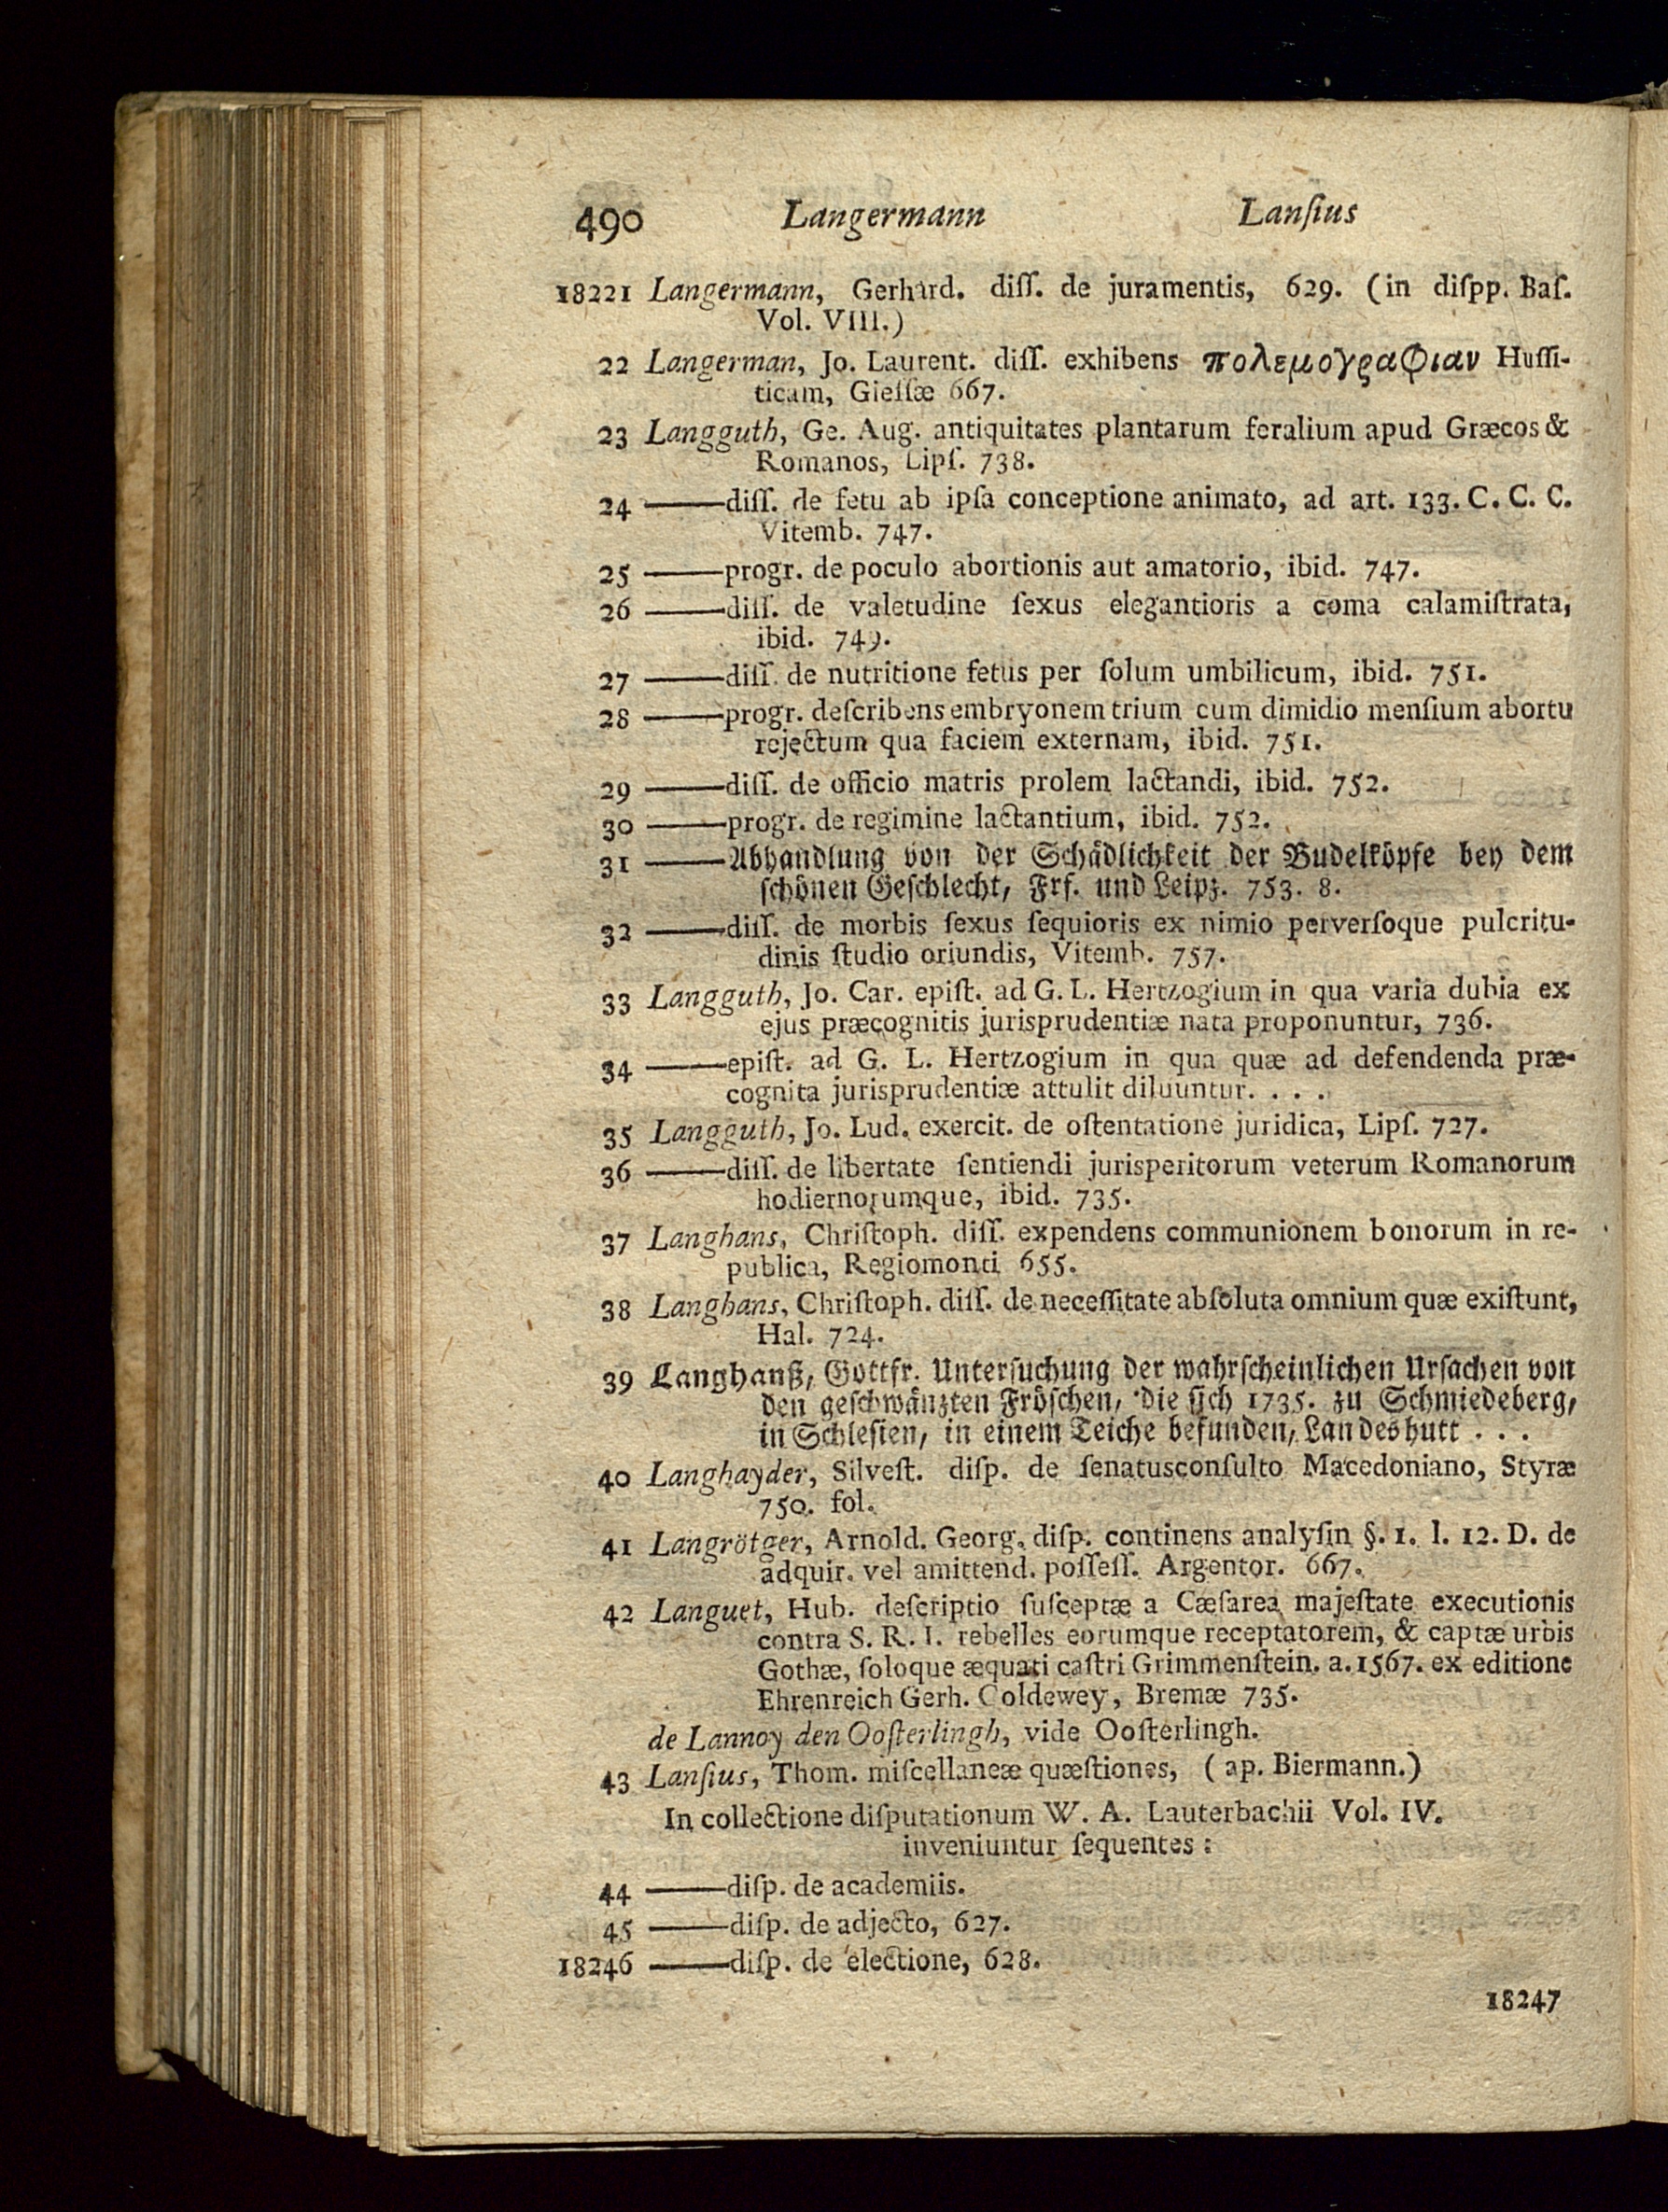 490 Langermann Lanſius
18221 Langermann, Gerhard. diſſ. de juramentis, 629. (in diſpp. Baſ.
Vol. VIII.)
22 Langerman, Jo. Laurent. diſſ. exhibens πολεμογραφιαν Huſſi-
ticam, Gieſſæ 667.
23 Langguth, Ge. Aug. antiquitates plantarum feralium apud Græcos &
Romanos, Lipſ. 738.
24 —— diſſ. de fetu ab ipſa conceptione animato, ad art. 133. C. C. C.
Vitemb. 747.
25 —— progr. de poculo abortionis aut amatorio, ibid. 747.
26 —— diſſ. de valetudine ſexus elegantioris a coma calamiſtrata,
ibid. 749.
27 —— diſſ. de nutritione fetus per ſolum umbilicum, ibid. 751.
28 —— progr. deſcribens embryonem trium cum dimidio menſium abortu
rejectum qua faciem externam, ibid. 751.
29 —— diſſ. de officio matris prolem lactandi, ibid. 752.
30 —— progr. de regimine lactantium, ibid. 752.
31 —— Abhandlung von der Schädlichkeit der Budelköpfe bey dem
ſchönen Geſchlecht, Frf. und Leipz. 753. 8.
32 —— diſſ. de morbis ſexus ſequioris ex nimio perverſoque pulcritu-
dinis ſtudio oriundis, Vitemb. 757.
33 Langguth, Jo. Car. epiſt. ad G. L. Hertzogium in qua varia dubia ex
ejus præcognitis jurisprudentiæ nata proponuntur, 736.
34 —— epiſt. ad G. L. Hertzogium in qua quæ ad defendenda præ-
cognita jurisprudentiæ attulit diluuntur. . . .
35 Langguth, Jo. Lud. exercit. de oſtentatione juridica, Lipſ. 727.
36 —— diſſ. de libertate ſentiendi jurisperitorum veterum Romanorum
hodiernorumque, ibid. 735.
37 Langhans, Chriſtoph. diſſ. expendens communionem bonorum in re-
publica, Regiomonti 655.
38 Langhans, Chriſtoph. diſſ. de neceſſitate abſoluta omnium quæ exiſtunt,
Hal. 724.
39 Langhanß, Gottfr. Unterſuchung der wahrſcheinlichen Urſachen von
den geſchwänzten Fröſchen, die ſich 1735. zu Schmiedeberg,
in Schleſien, in einem Teiche befunden, Landeshutt . . .
40 Langhayder, Silveſt. diſp. de ſenatusconſulto Macedoniano, Styræ
750. fol.
41 Langrötger, Arnold. Georg. diſp. continens analyſin §. 1. l. 12. D. de
adquir. vel amittend. poſſeſſ. Argentor. 667.
42 Languet, Hub. deſcriptio ſuſceptæ a Cæſarea majeſtate executionis
contra S. R. I. rebelles eorumque receptatorem, & captæ urbis
Gothæ, ſoloque æquati caſtri Grimmenſtein. a. 1567. ex editione
Ehrenreich Gerh. Coldewey, Bremæ 735.
de Lannoy den Ooſterlingh, vide Ooſterlingh.
43 Lanſius, Thom. miſcellaneæ quæſtiones, (ap. Biermann.)
In collectione diſputationum W. A. Lauterbachii Vol. IV.
inveniuntur ſequentes:
44 —— diſp. de academiis.
45 —— diſp. de adjecto, 627.
18246 —— diſp. de electione, 628.
18247